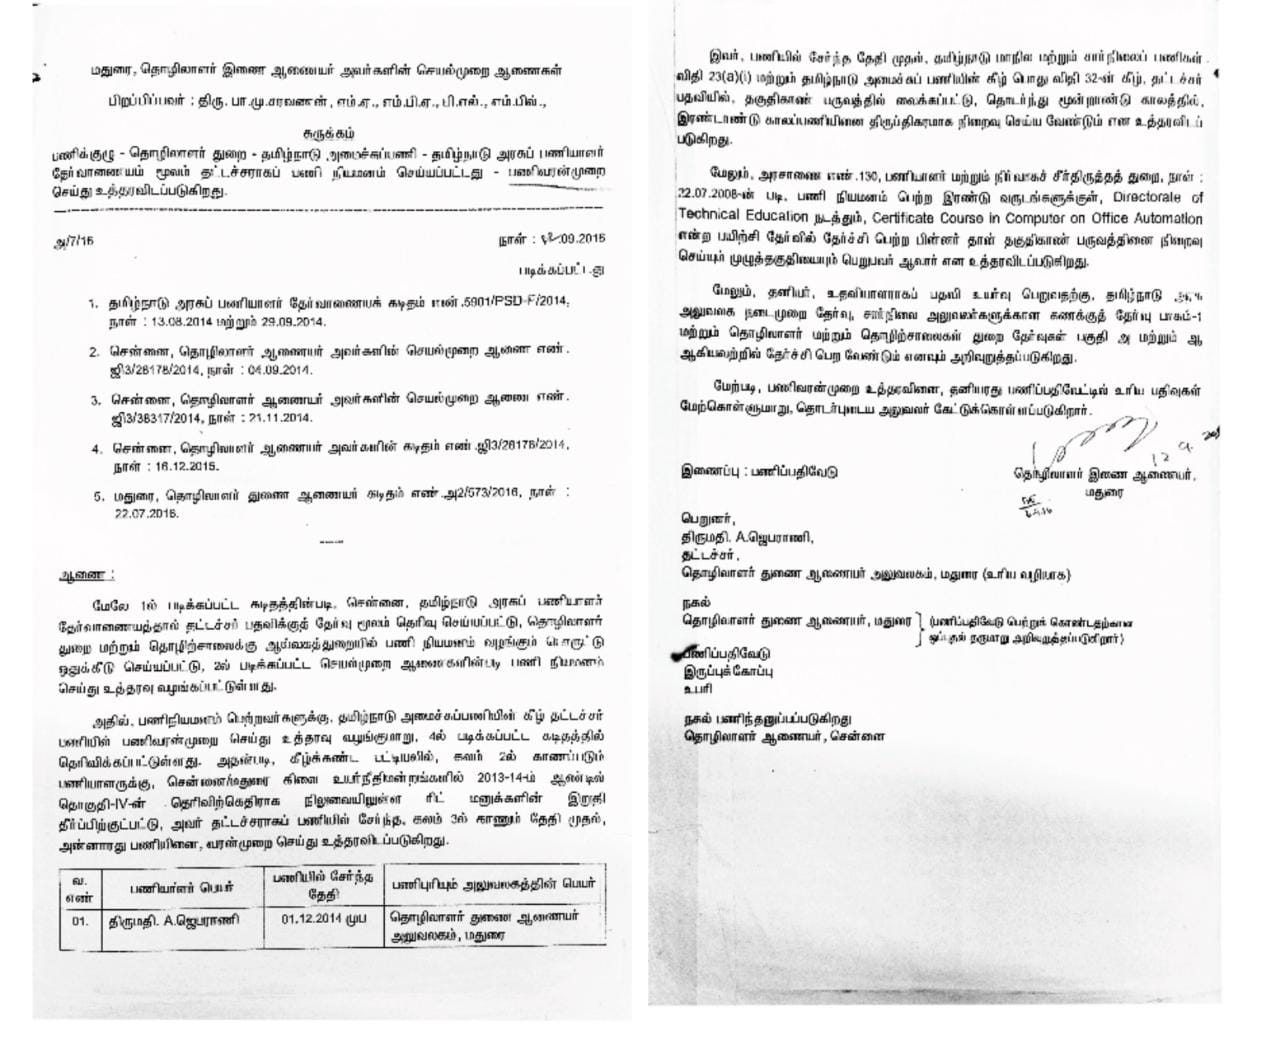 மதுரை, தொழிலாளர் இணை ஆணையர் அவர்களின் செயல்முறை ஆணைகள்
பிறப்பிப்பவர் : திரு. பா.மு.சரவணன், எம்.ஏ., எம்.பி.ஏ., பி.எல்., எம்.பில்.,
சுருக்கம்
பணிக்குழு - தொழிலாளர் துறை - தமிழ்நாடு அமைச்சுப்பணி - தமிழ்நாடு அரசுப் பணியாளர்
தேர்வாணையம் மூலம் தட்டச்சராகப் பணி நியமனம் செய்யப்பட்டது - பணிவரன்முறை
செய்து உத்தரவிடப்படுகிறது.
அ/7/16
நாள் : .09.2016
படிக்கப்பட்டது
1. தமிழ்நாடு அரசுப் பணியாளர் தேர்வாணையக் கடிதம் எண்.5901/PSD-F/2014,
நாள் : 13.08.2014 மற்றும் 29.09.2014.
2. சென்னை, தொழிலாளர் ஆணையர் அவர்களின் செயல்முறை ஆணை எண்.
ஜி3/28178/2014, நாள் : 04.09.2014.
3. சென்னை, தொழிலாளர் ஆணையர் அவர்களின் செயல்முறை ஆணை எண்.
ஜி3/38317/2014, நாள் : 21.11.2014.
4. சென்னை, தொழிலாளர் ஆணையர் அவர்களின் கடிதம் எண்.ஜி3/28178/2014,
நாள் : 16.12.2015.
5. மதுரை, தொழிலாளர் துணை ஆணையர் கடிதம் எண்.அ2/573/2016, நாள் :
22.07.2016.
ஆணை :
மேலே 1ல் படிக்கப்பட்ட கடிதத்தின்படி, சென்னை, தமிழ்நாடு அரசுப் பணியாளர்
தேர்வாணையத்தால் தட்டச்சர் பதவிக்குத் தேர்வு மூலம் தெரிவு செய்யப்பட்டு, தொழிலாளர்
துறை மற்றும் தொழிற்சாலைக்கு ஆய்வகத்துறையில் பணி நியமனம் வழங்கும் பொருட்டு
ஒதுக்கீடு செய்யப்பட்டு, 2ல் படிக்கப்பட்ட செயல்முறை ஆணைகளின்படி பணி நியமனம்
செய்து உத்தரவு வழங்கப்பட்டுள்ளது.
அதில், பணிநியமனம் பெற்றவர்களுக்கு, தமிழ்நாடு அமைச்சுப்பணியின் கீழ் தட்டச்சர்
பணியில் பணிவரன்முறை செய்து உத்தரவு வழங்குமாறு, 4ல் படிக்கப்பட்ட கடிதத்தில்
தெரிவிக்கப்பட்டுள்ளது. அதன்படி, கீழ்க்கண்ட பட்டியலில், கலம் 2ல் காணப்படும்
பணியாளருக்கு, சென்னை/மதுரை கிளை உயர்நீதிமன்றங்களில் 2013-14-ம் ஆண்டில்
தொகுதி-IV-ன் தெரிவிற்கெதிராக நிலுவையிலுள்ள ரிட் மனுக்களின் இறுதி
தீர்ப்பிற்குட்பட்டு, அவர் தட்டச்சராகப் பணியில் சேர்ந்த, கலம் 3ல் காணும் தேதி முதல்,
அன்னாரது பணியினை, வரன்முறை செய்து உத்தரவிடப்படுகிறது.
வ. எண் பணியாளர் பெயர் பணியில் சேர்ந்த தேதி பணிபுரியும் அலுவலகத்தின் பெயர்
01. திருமதி. A.ஜெபராணி 01.12.2014 முப தொழிலாளர் துணை ஆணையர்
அலுவலகம், மதுரை
இவர், பணியில் சேர்ந்த தேதி முதல், தமிழ்நாடு மாநில மற்றும் சார்நிலைப் பணிகள்
விதி 23(a)(i) மற்றும் தமிழ்நாடு அமைச்சுப் பணியின் கீழ் பொது விதி 32-ன் கீழ், தட்டச்சர்
பதவியில், தகுதிகாண் பருவத்தில் வைக்கப்பட்டு, தொடர்ந்து மூன்றாண்டு காலத்தில்,
இரண்டாண்டு காலப்பணியினை திருப்திகரமாக நிறைவு செய்ய வேண்டும் என உத்தரவிடப்
படுகிறது.
மேலும், அரசாணை எண்.130, பணியாளர் மற்றும் நிர்வாகச் சீர்திருத்தத் துறை, நாள் :
22.07.2008-ன் படி, பணி நியமனம் பெற்ற இரண்டு வருடங்களுக்குள், Directorate of
Technical Education நடத்தும், Certificate Course in Computer on Office Automation
என்ற பயிற்சி தேர்வில் தேர்ச்சி பெற்ற பின்னர் தான் தகுதிகாண் பருவத்தினை நிறைவு
செய்யும் முழுத்தகுதியையும் பெறுபவர் ஆவார் என உத்தரவிடப்படுகிறது.
மேலும், தனியர், உதவியாளராகப் பதவி உயர்வு பெறுவதற்கு, தமிழ்நாடு
அலுவலக நடைமுறை தேர்வு, சார்நிலை அலுவலர்களுக்கான கணக்குத் தேர்வு பாகம்-1
மற்றும் தொழிலாளர் மற்றும் தொழிற்சாலைகள் துறை தேர்வுகள் பகுதி அ மற்றும் ஆ
ஆகியவற்றில் தேர்ச்சி பெற வேண்டும் எனவும் அறிவுறுத்தப்படுகிறது.
மேற்படி, பணிவரன்முறை உத்தரவினை, தனியரது பணிப்பதிவேட்டில் உரிய பதிவுகள்
மேற்கொள்ளுமாறு, தொடர்புடைய அலுவலர் கேட்டுக்கொள்ளப்படுகிறார்.
இணைப்பு : பணிப்பதிவேடு
தொழிலாளர் இணை ஆணையர்,
மதுரை
பெறுனர்,
திருமதி. A.ஜெபராணி,
தட்டச்சர்,
தொழிலாளர் துணை ஆணையர் அலுவலகம், மதுரை (உரிய வழியாக)
நகல்
தொழிலாளர் துணை ஆணையர், மதுரை (பணிப்பதிவேடு பெற்றுக் கொண்டதற்கான
ஒப்புதல் தருமாறு அறிவுறுத்தப்படுகிறார்)
பணிப்பதிவேடு
இருப்புக்கோப்பு
உபரி
நகல் பணிந்தனுப்பப்படுகிறது
தொழிலாளர் ஆணையர், சென்னை